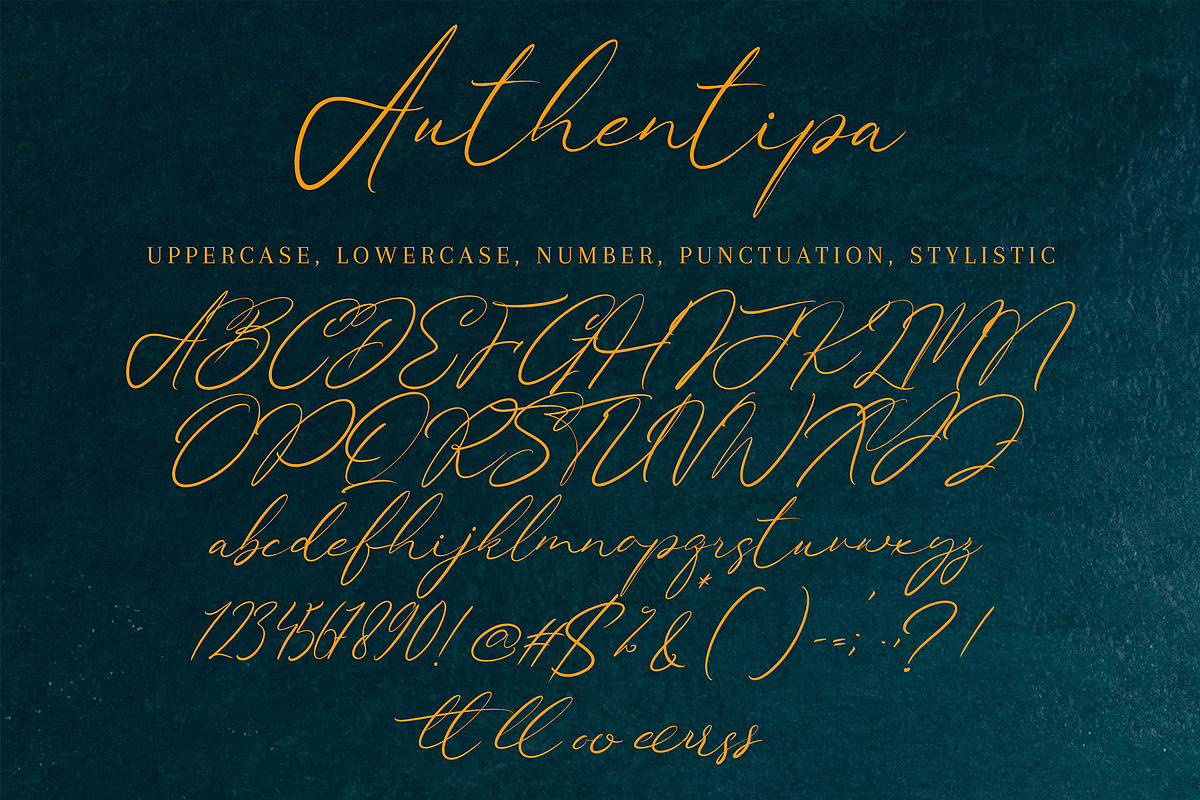 Authentipa
UPPERCASE, LOWERCASE, NUMBER, PUNCTUATION, STYLISTIC
ABCDEFGHIJKLMN
OPQRSTUVWXYZ
abcdefhijklmnopqrstuvwxyz
1234567890! @#$%&*() --=; ' ..,? /
tt ll oo eerrss